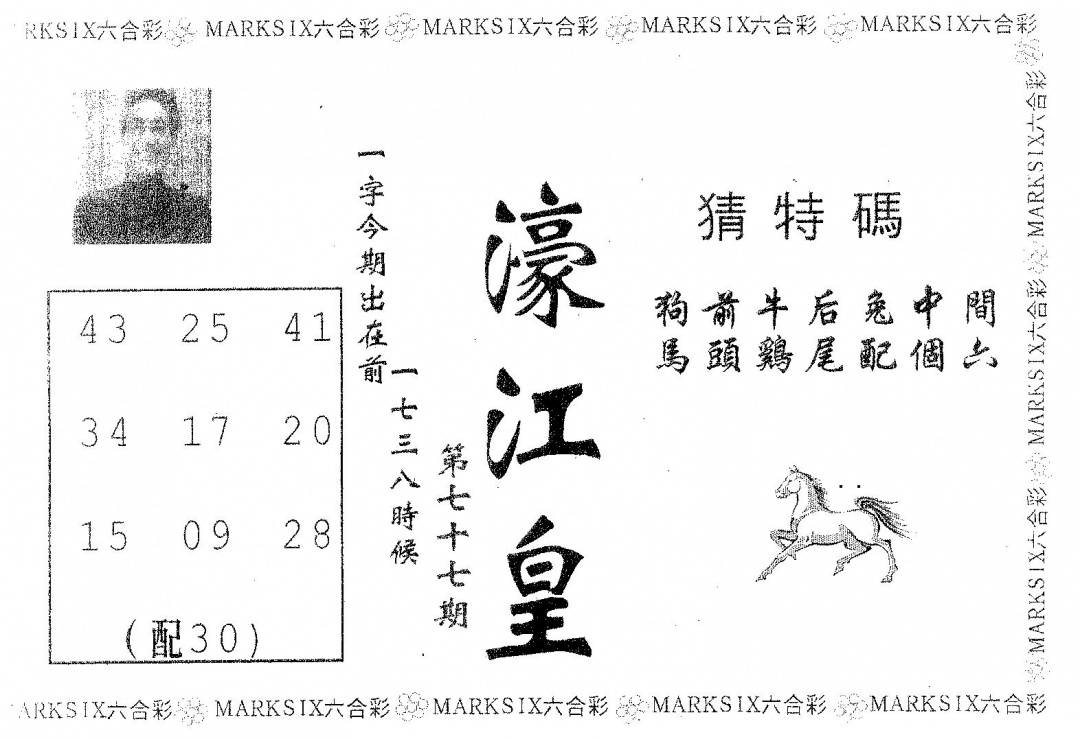 RKSIX六合彩 MARKSIX六合彩 MARKSIX六合彩 MARKSIX六合彩 MARKSIX六合彩
MARKSIX六合彩 MARKSIX六合彩 MARKSIX六合彩
猜特碼
狗前牛后兔中間
馬頭鷄尾配個六
濠江皇
第七十七期
一字今期出在前
一七三八時候
43 25 41
34 17 20
15 09 28
(配30)
ARKSIX六合彩 MARKSIX六合彩 MARKSIX六合彩 MARKSIX六合彩 MARKSIX六合彩